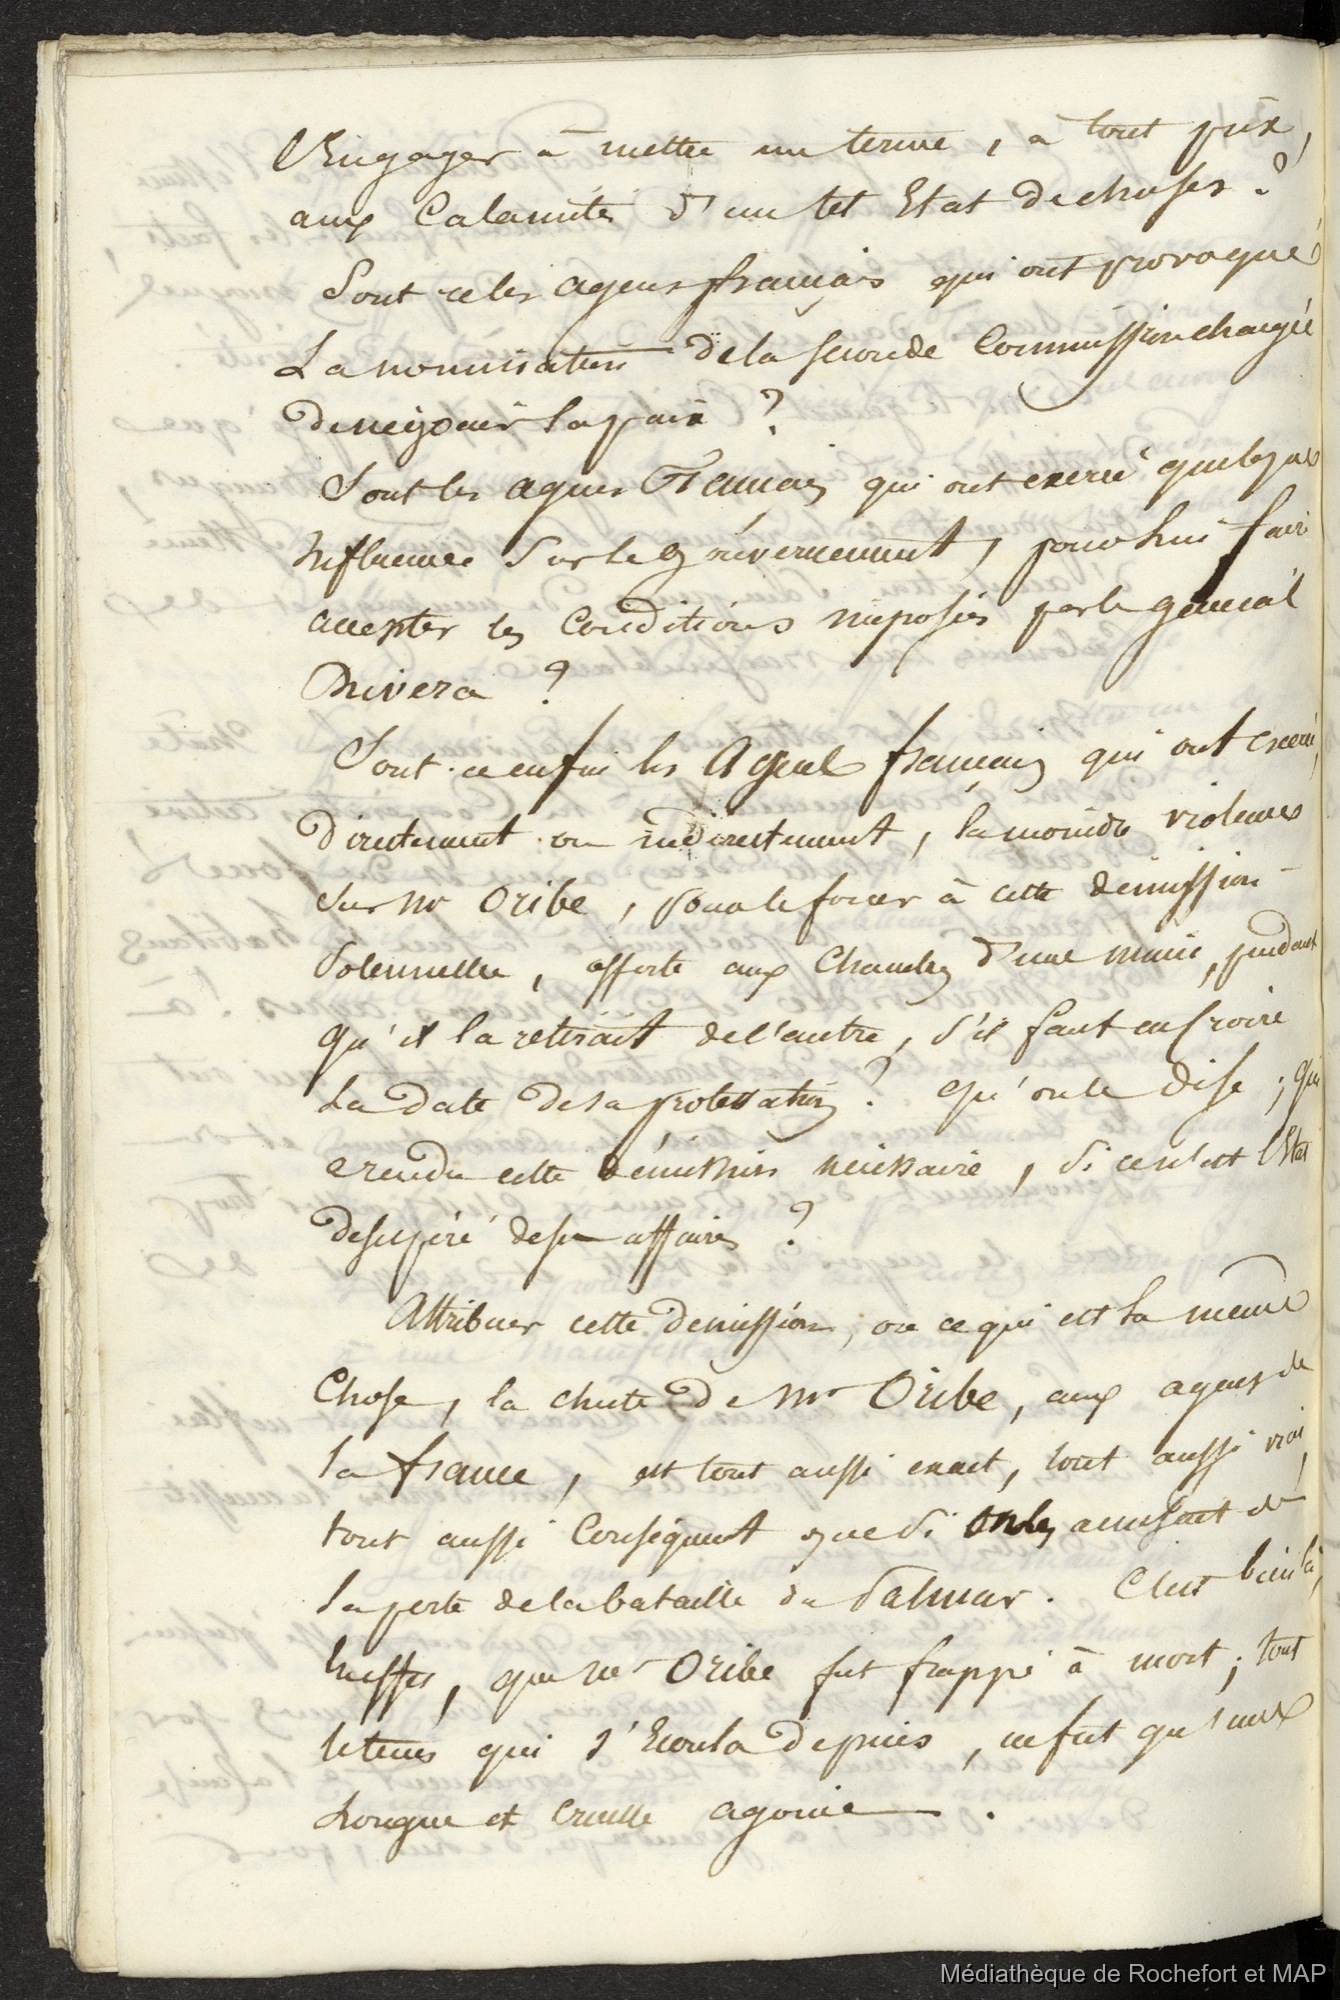 l'Engager à mettre un terme, à tout prix,
aux Calamités d'un tel Etat de choses ?
Sont-ce les agens français qui ont provoqué
La nomination de la seconde Commission chargée
de negocier la paix ?
Sont les agens Français qui ont exercé quelque
Influence sur le gouvernement, pour lui faire
accepter les Conditions imposées par le général
Rivera ?
Sont-ce enfin les Agens français qui ont exercé,
directement ou indirectement, la moindre violence
sur Mr Oribe, pour le forcer à cette démission
Solennelle, offerte aux Chambres d'une main, pendant
qu'il la retirait de l'autre, s'il faut en Croire
La date de sa protestation ? qu'on le dise ; qui
a rendu cette démission nécissaire, si ce n'est l'Etat
desespéré de ses affaires ?
Attribuer cette démission, ou ce qui est la même
Chose, la chute de Mr Oribe, aux agens de
la france, est tout aussi exact, tout aussi vrai,
tout aussi Conséquent que si on les accusait de
la perte de la bataille du Palmar. C'est bien là,
Messrs, que Mr Oribe fut frappé à mort ; tout
le tems qui s'Ecoula depuis, ne fut qu'une
Longue et cruelle agonie.
Médiathèque de Rochefort et MAP